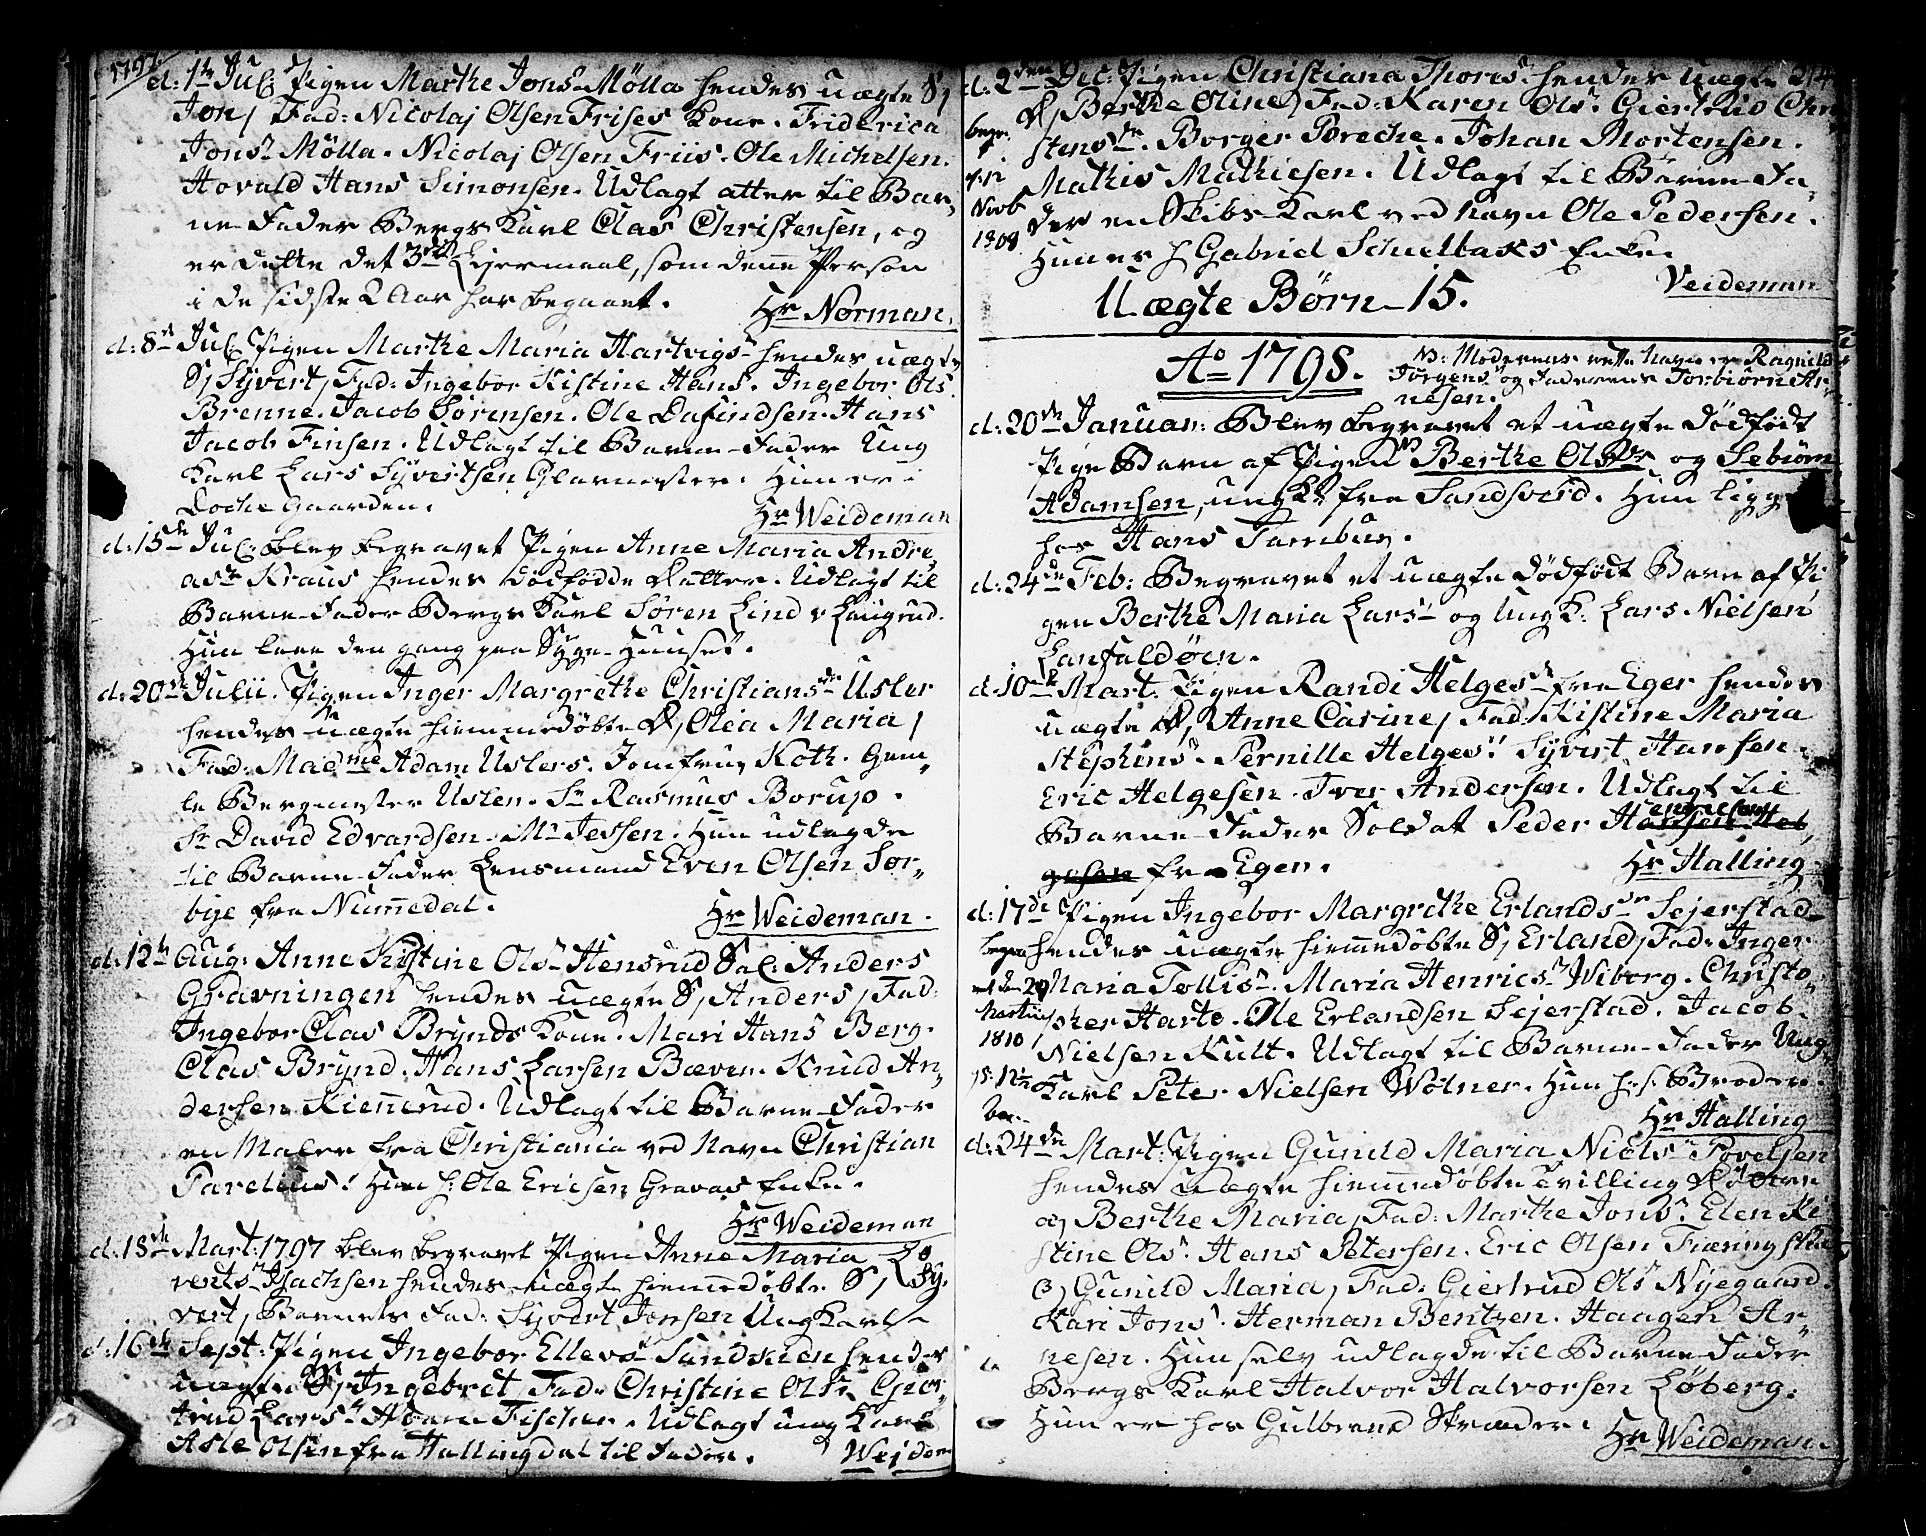 1797.
d: 1te Jul: Pigen Marthe Jons. Mølla hendes uægte S,
Jon, Fad: Nicolaj Olsen Frises Kone. Friderica
Jons. Mølla. Nicolaj Olsen Friis. Ole Michelsen.
Hovald Hans Simonsen. Udlagt atter til Bar,
ne-Fader Bergs Karl Clas Christensen, og
er dette det 3die Leiermaal, som denne Person
i de sidste 2 Aar har begaaet. Hr Norman.
d: 8de Jul: Pigen Marthe Maria Hartvigs. hendes uægte
S, Syvert, Fad: Ingebor Kistine Hans. Ingebor Ols.
Brenne. Jacob Sørensen. Ole Dafindsen. Hans
Jacob Finsen. Udlagt til Barne-Fader Ung
Karl Lars Syvertsen Glarmester. Hun er i
Docke Gaarden. Hr Weideman
d: 15de Jul: blev begravet Pigen Anne Maria Andre,
asdr Kraus hendes dødfødde Datter. Udlagt til
Barne-Fader Bergs Karl Søren Lind v Laugrud.
Hun laae den gang paa Syge-Huuset.
d: 20de Julii. Pigen Inger Margrethe Christiansdr Usler
hendes uægte hiemmedøbte D, Olea Maria,
Fad: Madme Adam Uslers. Jomfru Koth. Gam,
le Bergmester Usler. Sr Rasmus Borup.
Sr David Edvardsen. Mr Jessen. Hun udlagde
til Barne-Fader Lensmand Even Olsen Sør,
bye fra Nummedal. Hr Weideman.
d: 12te Aug: Anne Kistine Ols. Hensrud Sal: Anders
Gravningen hendes uægte S, Anders, Fad:
Ingebor Clas Brynds Kone. Mari Hans Berg.
Clas Brynd. Hans Larsen Bæven. Knud An,
dersen Kiennerud. Udlagt til Barne-Fader
en Maler fra Christiania ved Navn Christian
Parelius! Hun s: Ole Ericsen Gravas Enke.
Hr Weideman
d: 18de Mart: 1797 blev begravet Pigen Anne Maria Lo,
vents. Isachsen hendes uægte hiemmedøbte S, Sy,
vert, Barnets Fad: Syvert Jonsen Ung Karl
d: 16de Sept: Pigen Ingebor Ellevs. Sandsvien hendes
uægte S, Ingebret, Fad: Christine Ols. Gier,
trud Lars. Adam Fischer. Udlagt ung Karl
Asle Olsen fra Hallingdal til Fader. Wejdem
d: 2den Dec: Pigen Christiana Thores. hendes uægte 214
D, Berthe Oline, Fad: Karen Ols. Giertrud Chri
stensdr. Borger Breche. Johan Mortensen.
Mathis Mathiesen. Udlagt til Barne-Fa,
der en Skibs Karl ved Navn Ole Pedersen.
Hun es s Gabriel Schultaks Enke.
Veideman
begr.
Novb
1808
Uægte Børn 15.
Ao 1798.
NB: Moderens rette Navn er Ragnild
Jørgens. og Faderens Torbiørn Ar,
nesen.
d: 20de Januar: Blev begravet et uægte dødfødt
Pige Barn af Pigen NB Berthe Olsdr og Sebiørn
Adamsen, ung K: fra Sandsverd. Hun ligger
hos Hans Tambur.
d: 24de Feb: Begravet et uægte dødfødt Barn af Pi
gen Berthe Maria Lars. og Ung K: Lars Nielsen
Lanfaldøen.
d: 10de Mart: Pigen Randi Helges. fra Eger hendes
uægte D, Anne Carine, Fad: Kistine Maria
Stephens. Pernille Helges. Syvert Hansen.
Eric Helgesen. Iver Andersen. Udlagt til
Barne-Fader Soldat Peder Hansen Hel,
gesen fra Eger. Hr Halling
d: 17de Pigen Ingebor Margrethe Erlandsdr Sejerstad
hendes uægte hiemmedøbte S, Erland, Fad: Inger
Maria Tollis. Maria Henrics. Wiborg. Christo,
pher Harto. Ole Erlandsen Sejerstad. Jacob
Nielsen Kult. Udlagt til Barne-Fader Ung
Karl Peter Nielsen Wolner. Hun hos Broderen
Hr Halling
1810
d: 24de Mart: Pigen Gunild Maria Niels. Povelsen
hendes uægte hiemmedøbte Tvilling Døttre
a, Berthe Maria, Fad: Marthe Jons. Elen Ki
stine Ols. Hans Petersen. Eric Olsen
b, Gunild Maria, Fad: Giertrud Ols. Nyegaard.
Kari Jons. Herman Bentzen. Haagen Ar,
nesen. Hun selv udlagde til Barne-Fader
Bergs Karl Halvor Halvorsen Løberg.
Hun er hos Gulbrand Skræder.
Hr Weideman.